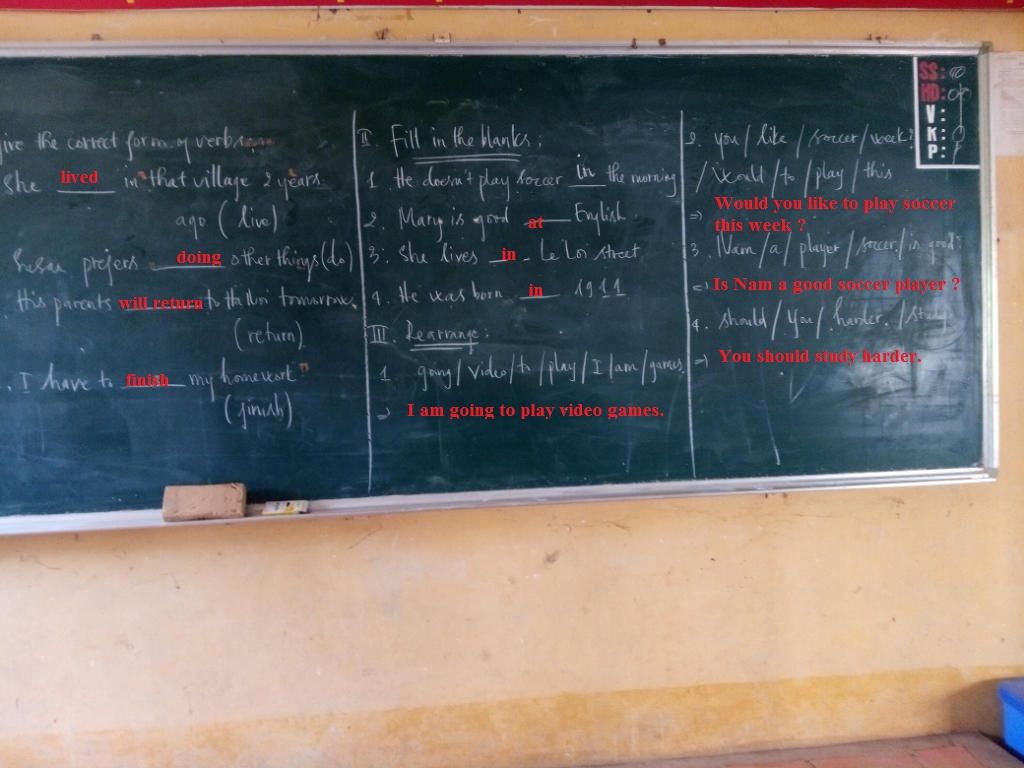 ive the correct form of verbs:
She lived in that village 2 years
ago (live)
Susan prefers doing other things (do)
His parents will return to Hà Nội tomorrow.
(return)
. I have to finish my homework
(finish)
II Fill in the blanks:
1. He doesn't play soccer in the morning
2. Mary is good at English.
3. She lives in Le Loi street
4. He was born in 1911
III. Rearrange:
1 going / video / to / play / I / am / games.
=> I am going to play video games.
2. you / like / soccer / week?
/ Would / to / play / this
=> Would you like to play soccer
this week ?
3. Nam / a / player / soccer / is good?
=> Is Nam a good soccer player ?
4. should / you / harder. / study
=> You should study harder.
SS:
HD:
V :
K :
P :